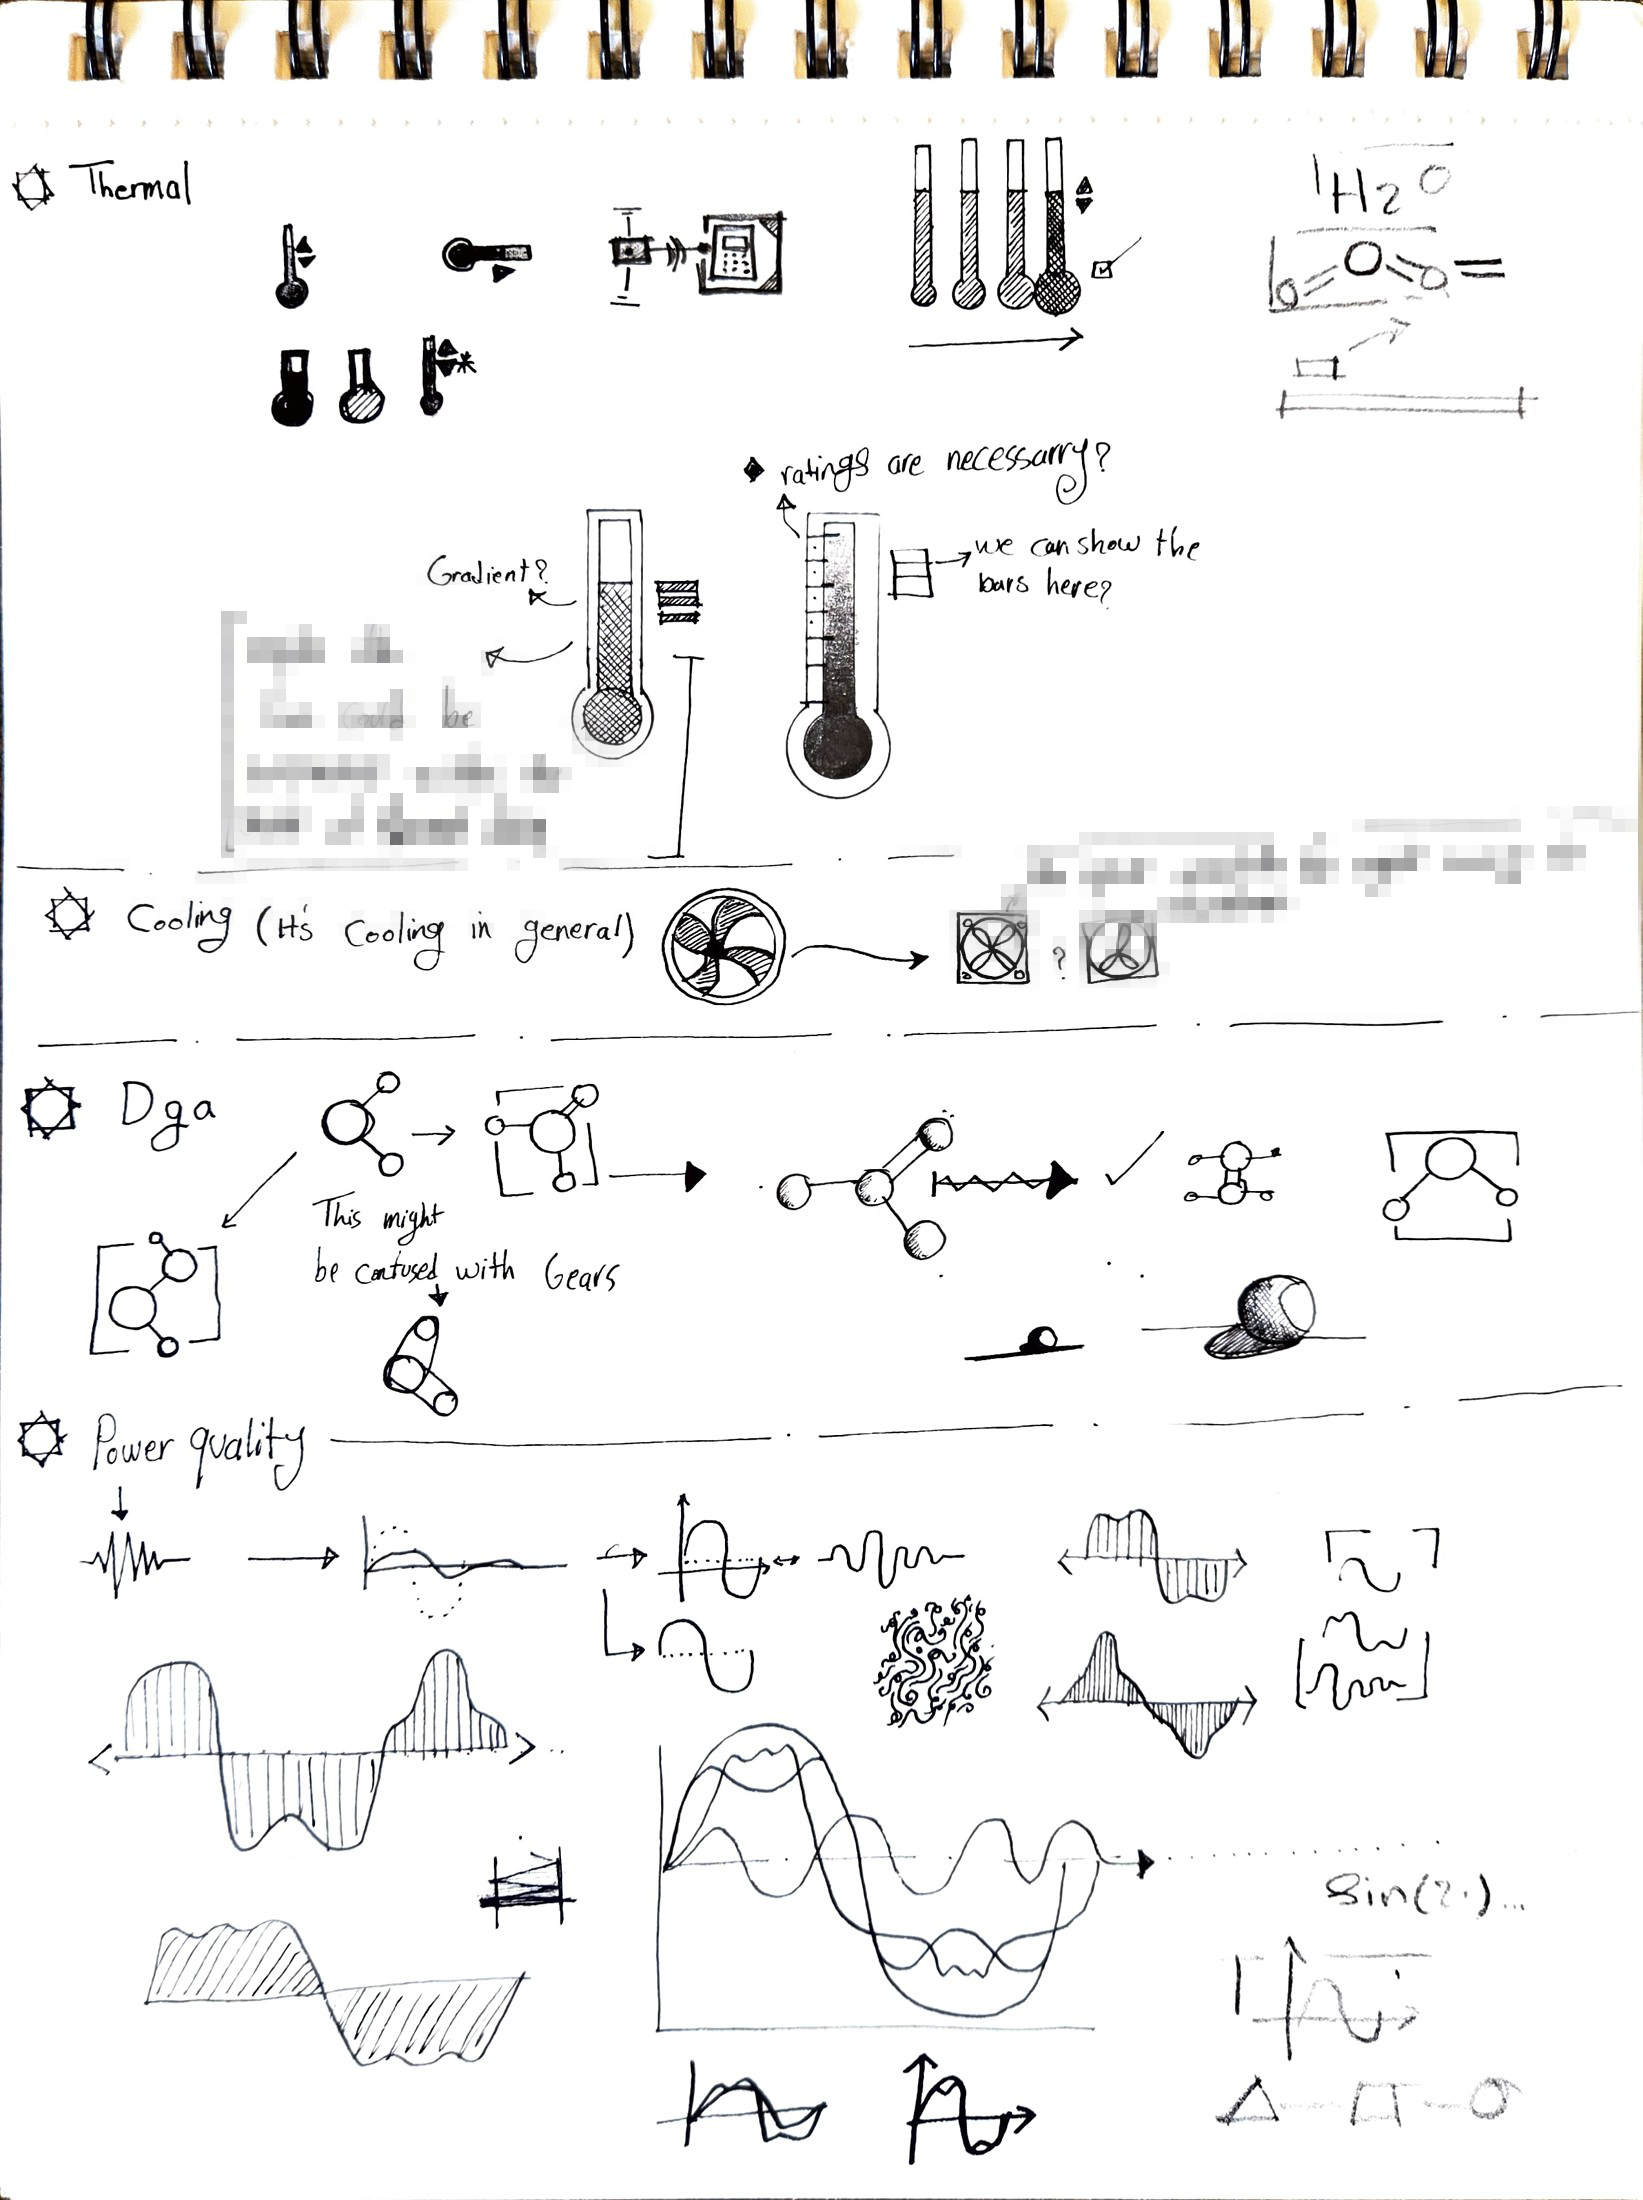 Thermal
H2O
ratings are necessarry?
Gradient?
we can show the
bars here?
could be
Cooling (It's Cooling in general)
?
Dga
This might
be confused with Gears
Power quality
Sin(2.)...